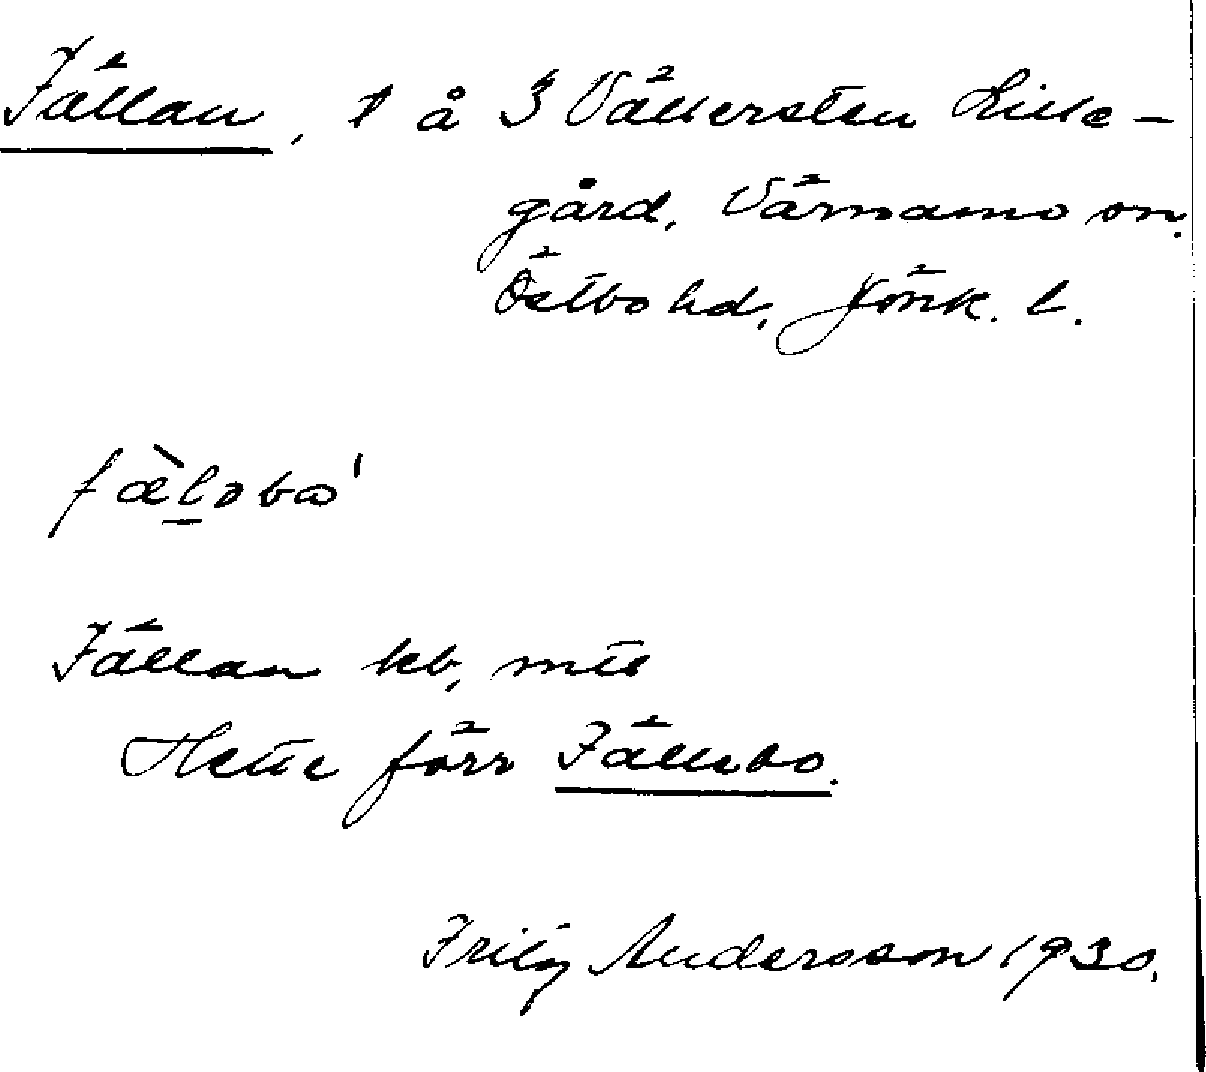 Fällan, 1 å 3 Vällersten Lille-
gård, Värnamo sn.
Östbo hd, Jönk. l.
fæ̀l̲əbɷ'
Fällan kb, mtl
Hette förr Fällebo.
Fritz Andersson 1930.